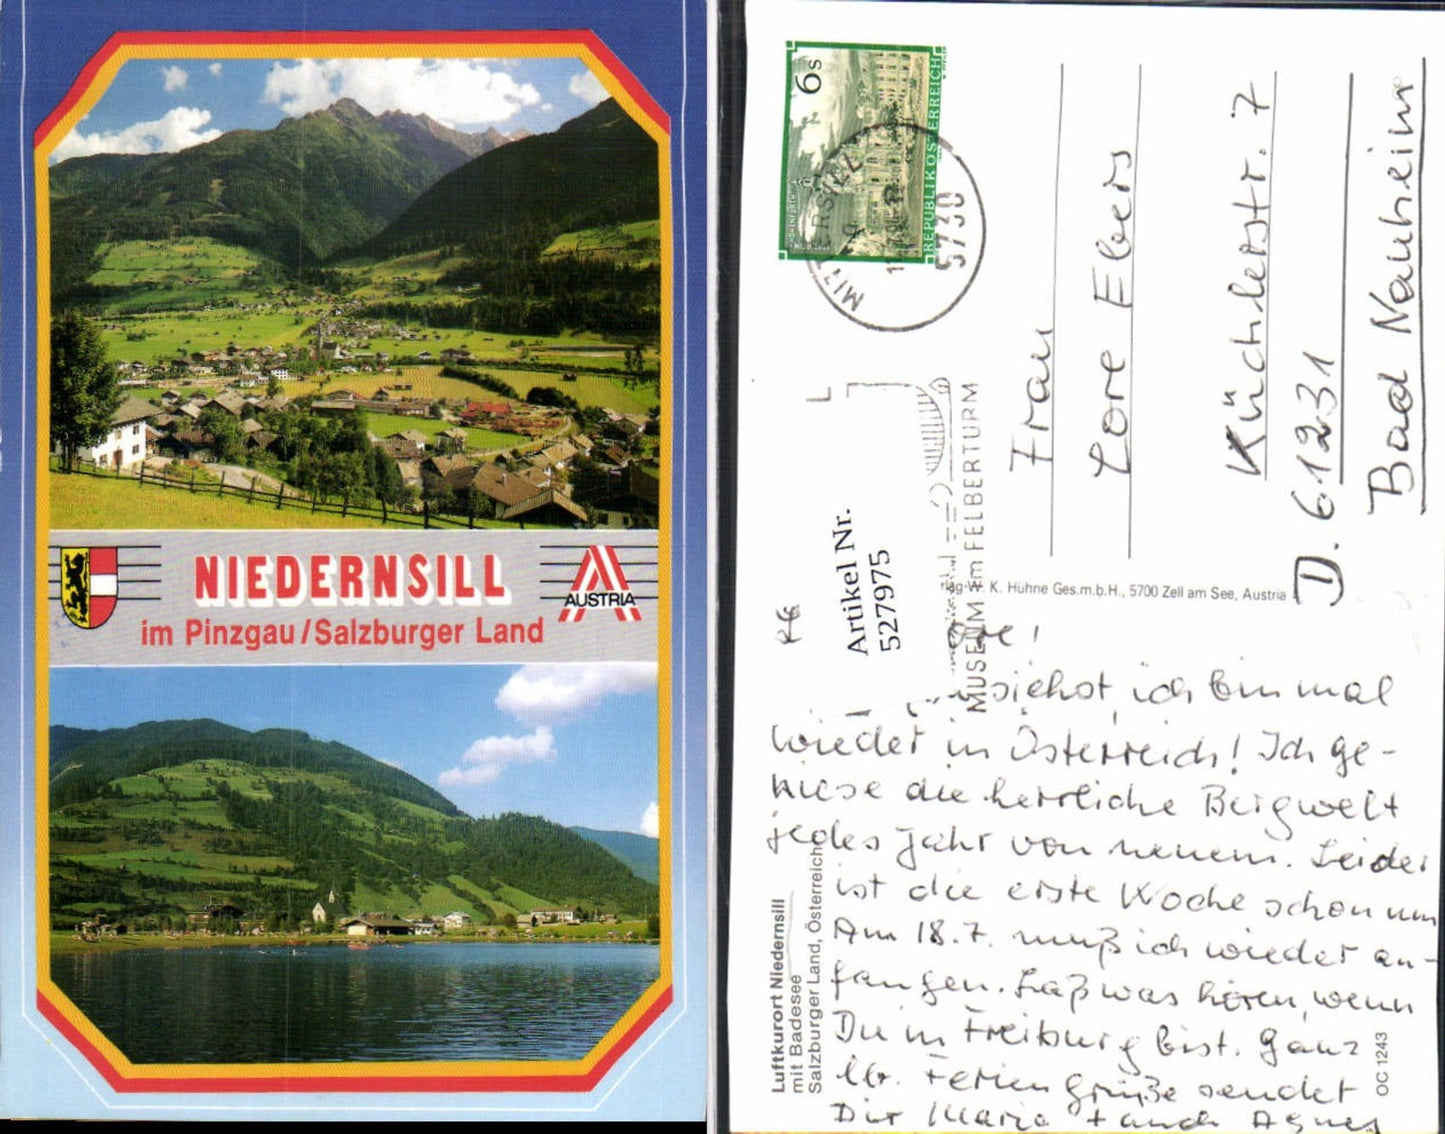 NIEDERNSILL
im Pinzgau/Salzburger Land
AUSTRIA
6s
REPUBLIK ÖSTERREICH
5730
MUSEUM im FELBERTURM
Artikel Nr.
527975
Frau
Lore Ebers
Küchlerstr. 7
D. 61231
Bad Nauheim
W. K. Hühne Ges.m.b.H., 5700 Zell am See, Austria
siehst, ich bin mal
wieder in Österreich! Ich ge-
niese die herrliche Bergwelt
jedes Jahr von neuem. Leider
ist die erste Woche schon um
Am 18.7. muß ich wieder an-
fangen. Laß was hören, wenn
Du in Freiburg bist. Ganz
lb. Ferien Grüße sendet
Dir Maria + auch Agnes
Luftkurort Niedernsill
mit Badesee
Salzburger Land, Österreich
OC 1243